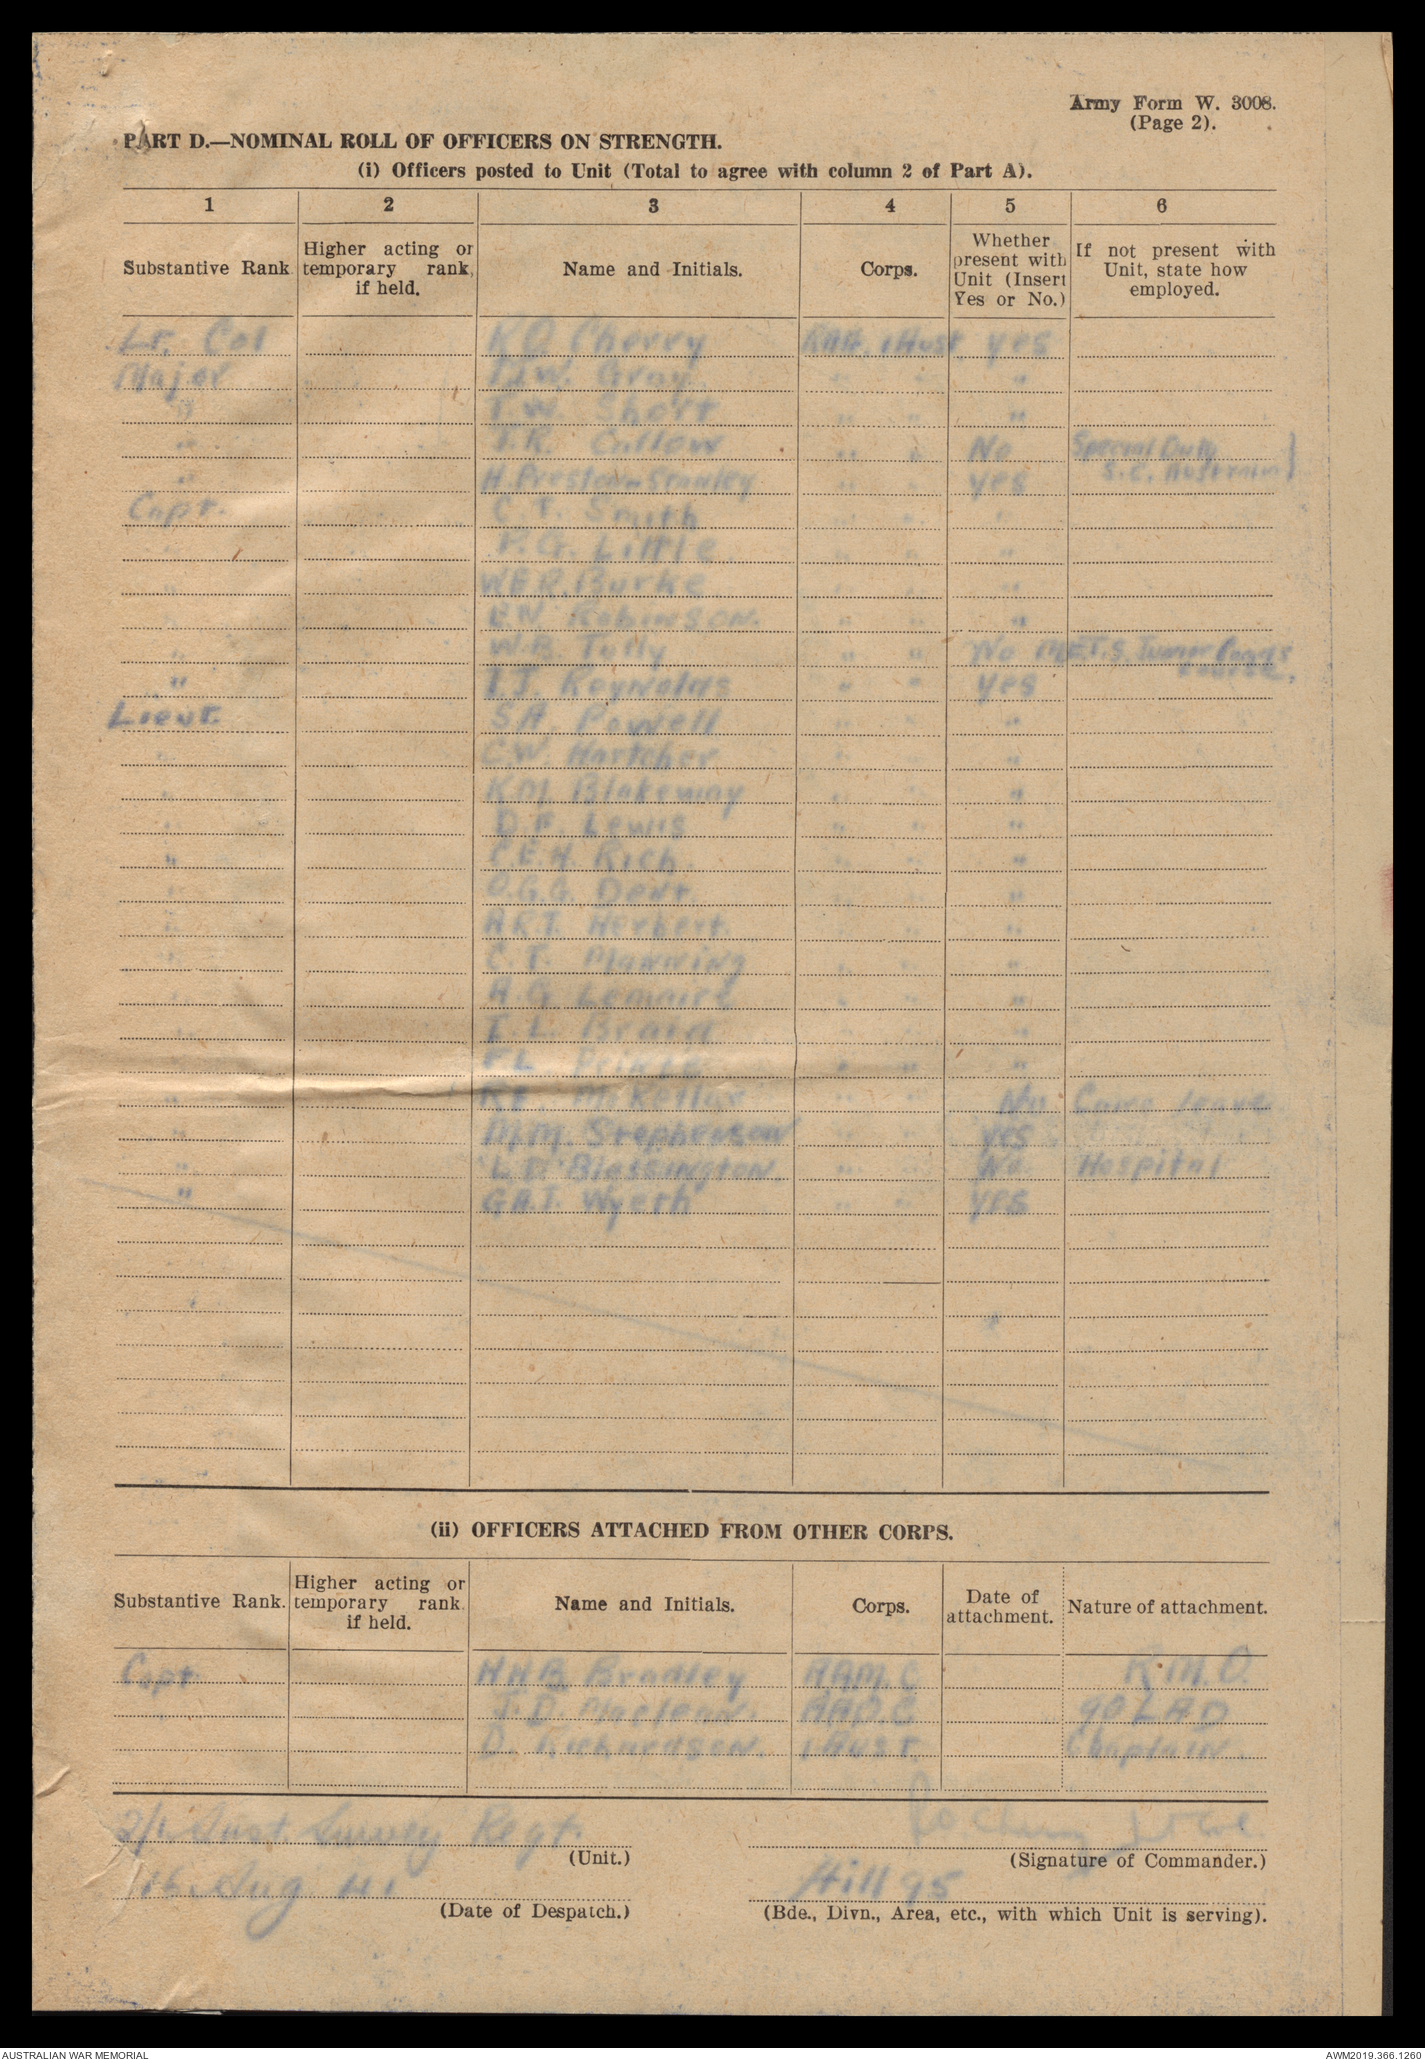 Army Form W. 3008.
(Page 2).
PART D.—NOMINAL ROLL OF OFFICERS ON STRENGTH.
(i) Officers posted to Unit (Total to agree with column 2 of Part A).
1 2 3 4 5 6
Substantive Rank Higher acting or temporary rank, if held. Name and Initials. Corps. Whether present with Unit (Insert Yes or No.) If not present with Unit, state how employed.
Lt. Col Cherry RAA. 1 Aust yes
Major Gray " " "
" T.W. Short " " "
" J.R. Callow " " No Special Duty
" H. Preston Stanley " " yes S.E. Australia
Capt. C. T. Smith " " "
" P.G. Little " " "
" W.E.R. Burke " " "
" E.N. Robinson. " " "
" W.B. Tully " " No
" I.J. Reynolds " " yes course.
Lieut. S.A. Powell " " "
" C.W. Hartcher " " "
" K.M. Blakeway " " "
" D.F. Lewis " " "
" C.E.H. Rich " " "
" O.G.G. Dent. " " "
" A.R.T. Herbert. " " "
" C.T. Manning " " "
" A.G. Lemaire " " "
" T.L. Braid " " "
" F.L. " " "
" R.E. McKellar " " No Leave
" M.M. Stephenson " " yes
" L.D. Blessington. " " No. Hospital
" G.A.T. Wyeth " " yes
(ii) OFFICERS ATTACHED FROM OTHER CORPS.
Substantive Rank. Higher acting or temporary rank. if held. Name and Initials. Corps. Date of attachment. Nature of attachment.
Capt H.H.B. Bradley AAM.C R.M.O.
J.D. Maclean. AAO.C 90 LAD
D. Richardson. 1 Aust. Chaplain.
2/1 Aust. Survey Regt.
(Unit.)
(Signature of Commander.)
16. Aug. 41
(Date of Despatch.)
Hill 95
(Bde., Divn., Area, etc., with which Unit is serving).
AUSTRALIAN WAR MEMORIAL
AWM2019.366.1260